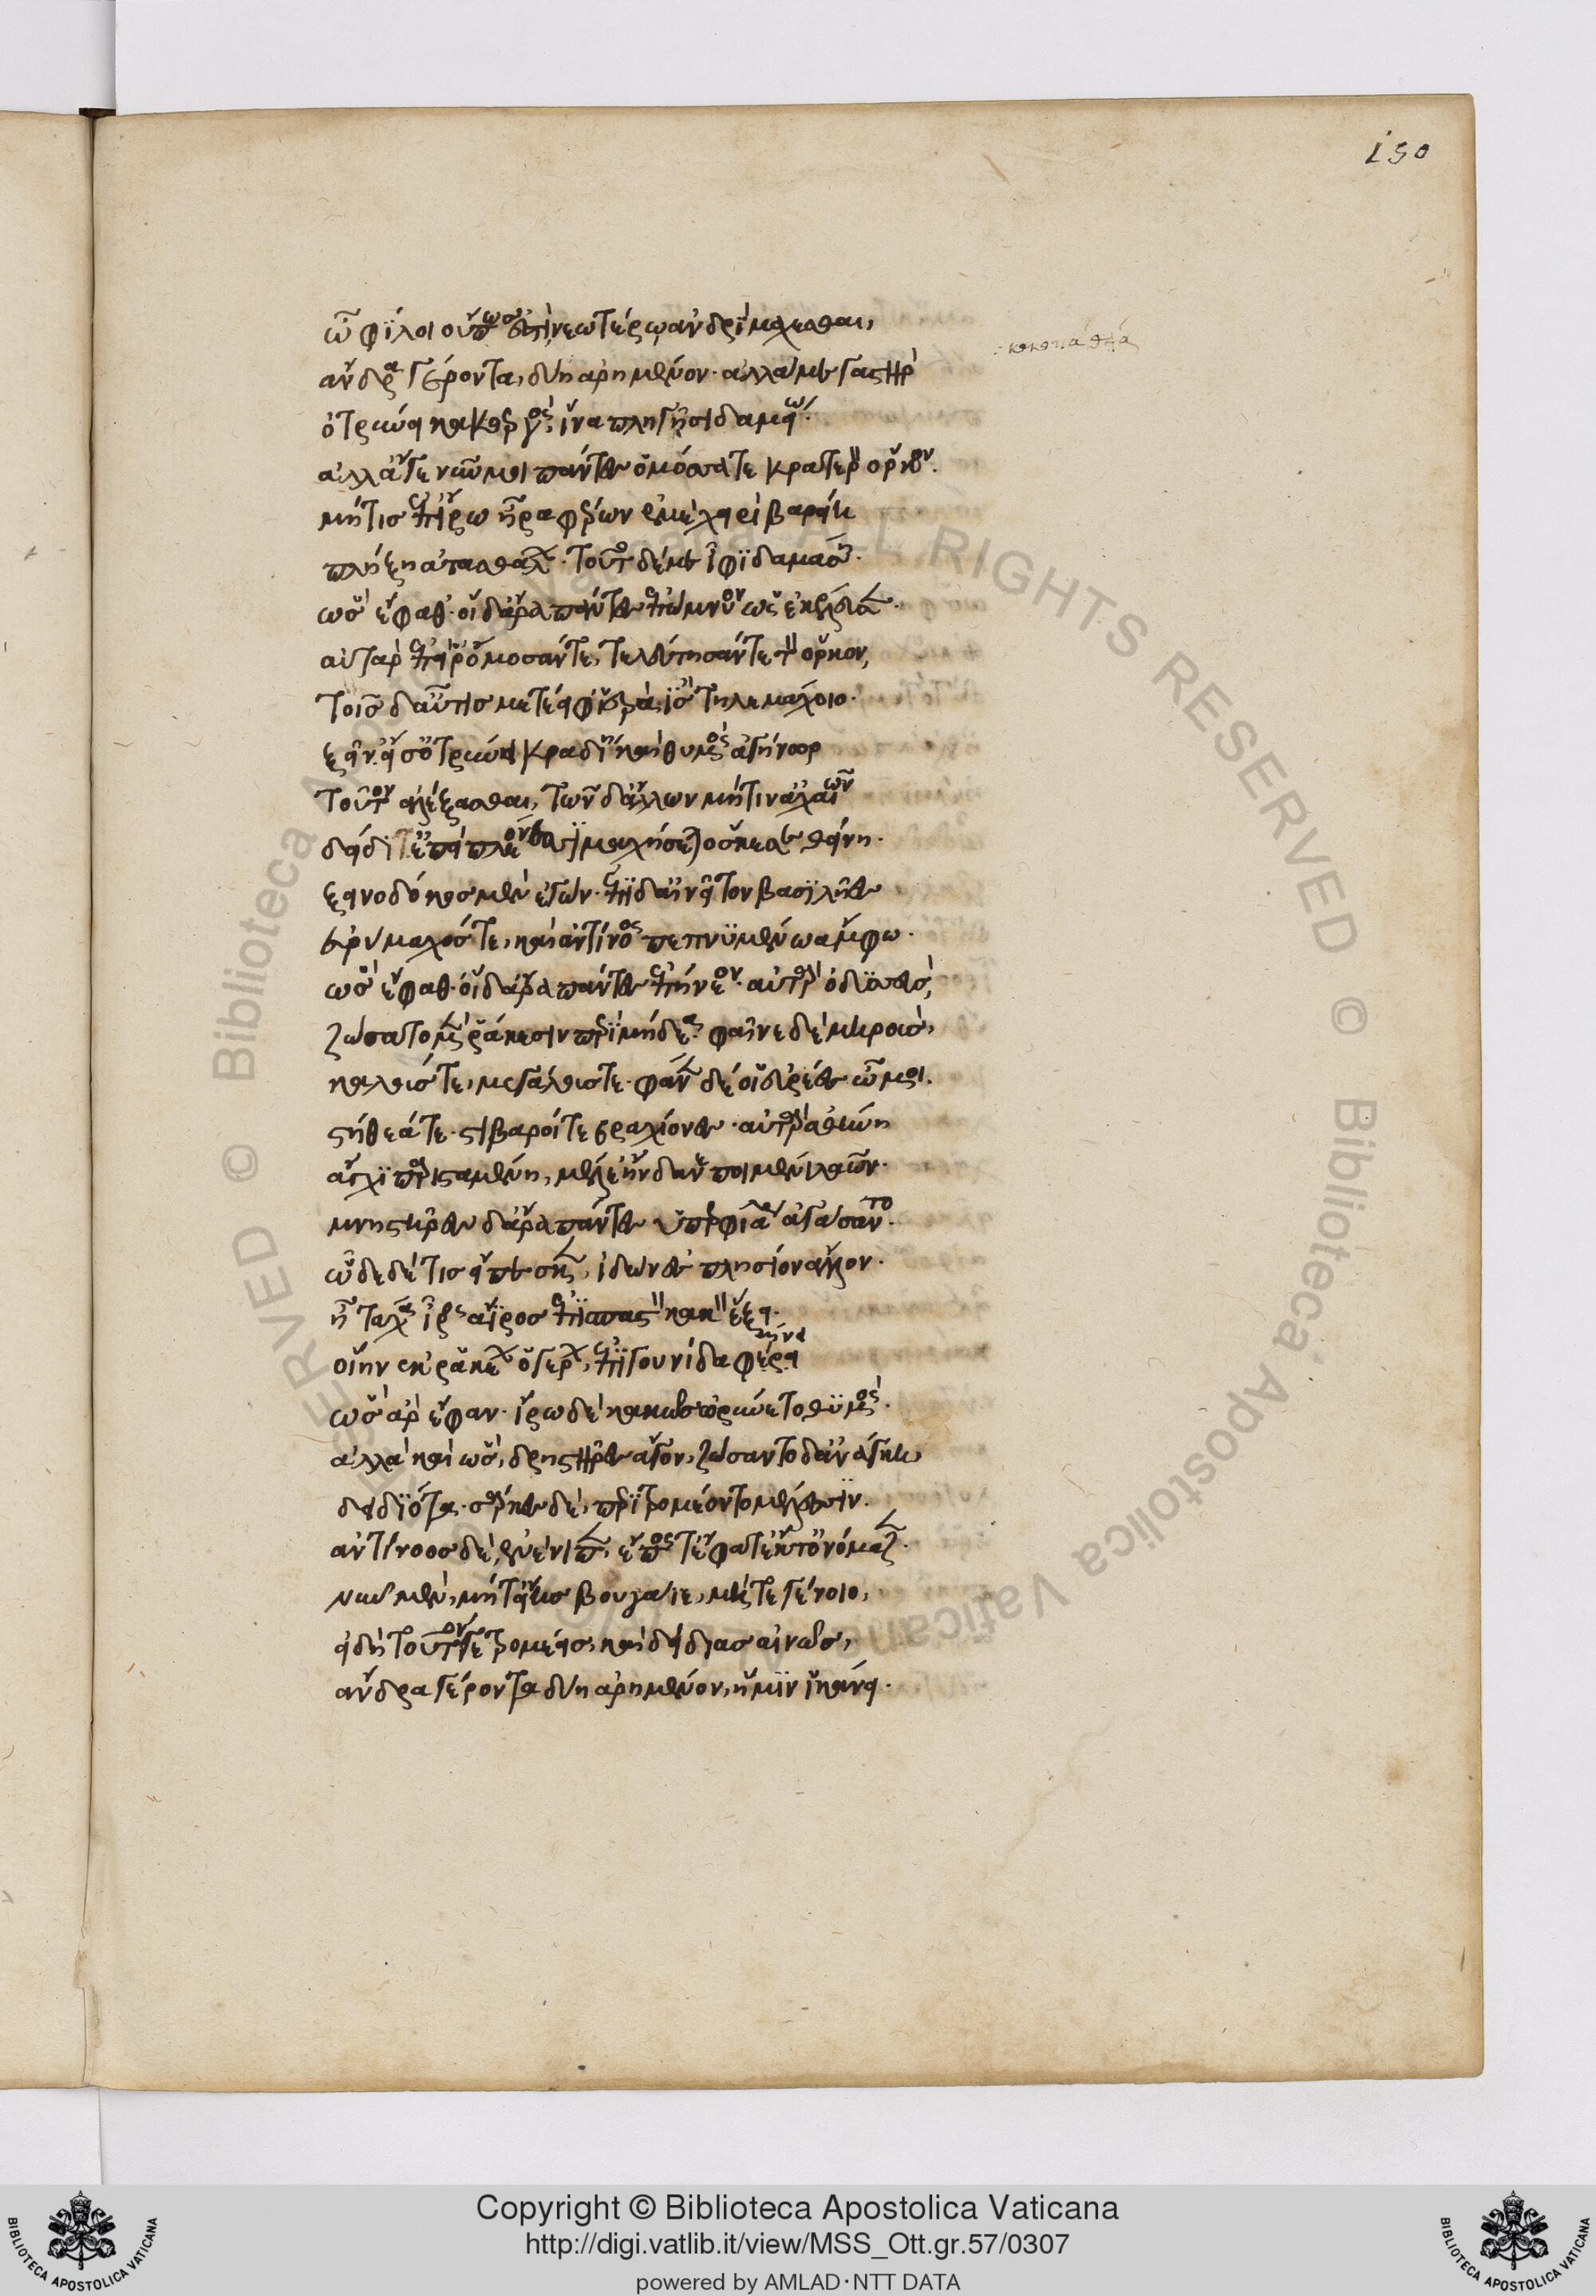 150
ὦ φίλοι οὔπως ἔστι νεωτέρῳ ἀνδρὶ μάχεσθαι,
ἄνδρα γέροντα, δύη ἀρημένον· ἀλλά με γαστὴρ
ὀτρύνει κακοεργός, ἵνα πληγῇσι δαμείω.
ἀλλ' ἄγε νῦν μοι πάντες ὀμόσσατε καρτερὸν ὅρκον.
μήτις ἐπ' ἴρω ἦρα φέρων ἐμὲ χειρὶ βαρείῃ
πλήξη ἀτασθάλλων· τούτω δέ με ἶφι δαμάσση.
ὣς ἔφαθ'· οἱ δ' ἄρα πάντες ἐπώμνυον ὡς ἐκέλευεν.
αὐτὰρ ἐπεί ῥ' ὄμοσάν τε, τελεύτησάν τε τὸν ὅρκον,
τοῖς δ' αὖτις μετέειφ' ἱερὰ ἲς τηλεμάχοιο.
ξεῖν' εἴ σ' ὀτρύνει κραδίη καὶ θυμὸς ἀγήνωρ
τοῦτον ἀλέξασθαι, τῶν δ' ἄλλων μήτιν' ἀχαιῶν
δείδιθ' ἐπεὶ πλεόνεσσι μαχήσεται ὅς κέ σε θείνη.
ξεινοδόκος μὲν ἐγών· ἐπὶ δ' αἰνεῖτον βασιλῆες
εὐρύμαχός τε, καὶ ἀντίνοος πεπνυμένω ἄμφω.
ὣς ἔφαθ'· οἱ δ' ἄρα πάντες ἐπήνεον· αὐτὰρ ὀδυσσεύς,
ζώσατο μὲν ῥάκεσιν περὶ μήδεα· φαῖνε δὲ μηροὺς,
καλούς τε, μεγάλους τε· φάνεν δέ οἱ εὐρέες ὦμοι.
στήθεά τε· στιβαροί τε βραχίονες· αὐτὰρ ἀθήνη
ἄγχι παρισταμένη, μέλε' ἤλδανε ποιμένι λαῶν.
μνηστῆρες δ' ἄρα πάντες ὑπερφιάλως ἀγάσαντο.
ὧδε δέ τις εἴπεσκεν, ἰδὼν ἐς πλησίον ἄλλον.
ἦ τάχα ἶρος ἄϊρος ἐπίσπαστον κακὸν ἕξει.
οἵην ἐκ ῥακέων ὁ γέρων, ἐπιγουνίδα φαίνει
ὣς ἄρ' ἔφαν· ἴρω δὲ κακῶς ὠρίνετο θυμός.
ἀλλὰ καὶ ὣς, δρηστῆρες ἄγον, ζώσαντο δ' ἀνάγκη,
δειδιότα· σάρκες δὲ, περιτρομέοντο μέλεσσιν.
ἀντίνοος δ' ἐνένιπεν, ἔπος τ' ἔφατ' ἔκ τ' ὀνόμαζεν.
νῦν μὲν, μήτ' εἴης βουγάϊε, μήτε γένοιο,
εἰ δὴ τοῦτόν γε τρομέεις, καὶ δείδιας αἰνῶς,
ἄνδρα γέροντα δύη ἀρημένον, ἥ μιν ἱκάνει.
Copyright © Biblioteca Apostolica Vaticana
http://digi.vatlib.it/view/MSS_Ott.gr.57/0307
powered by AMLAD·NTT DATA